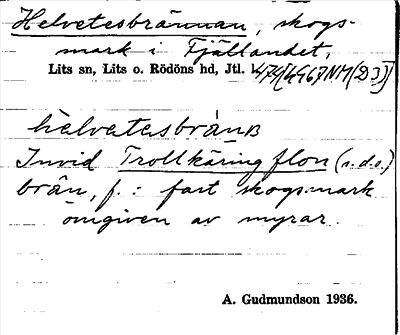 Helvetesbrännan, skogs-
mark i Fjällandet,
Lits sn, Lits o. Rödöns hd, Jtl.
hèlvetesbrànʙ
Invid Trollkäringflon (s.d.o.)
brän, f. : fast skogsmark
omgiven av myrar.
A. Gudmundson 1936.